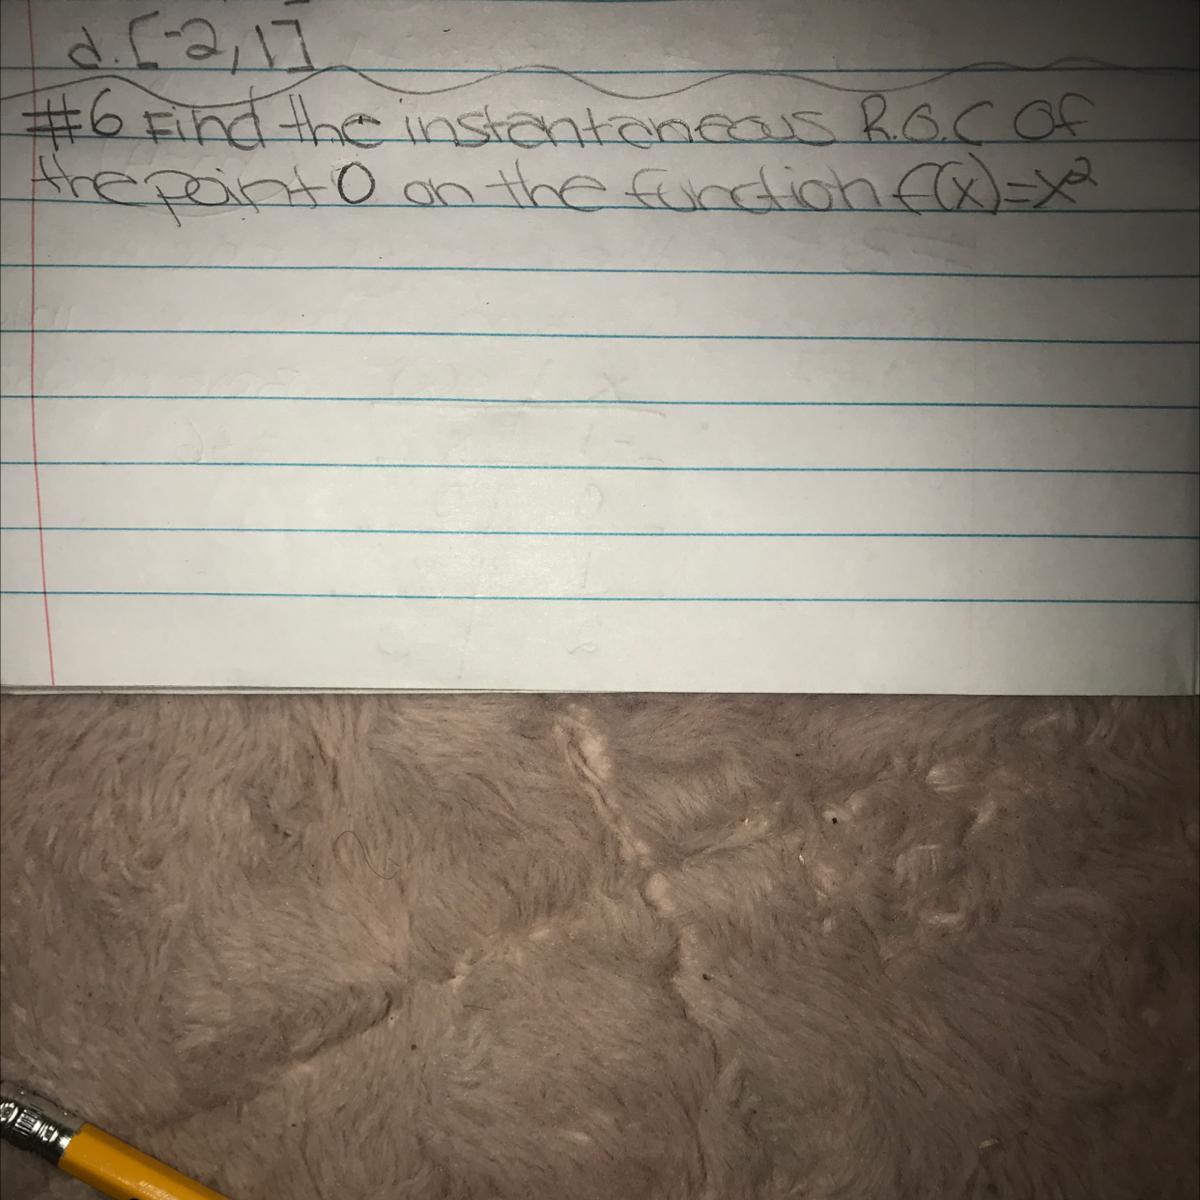 d. [-2, 1]
#6 Find the instantaneous R.O.C Of
the point 0 on the function f(x)=x²